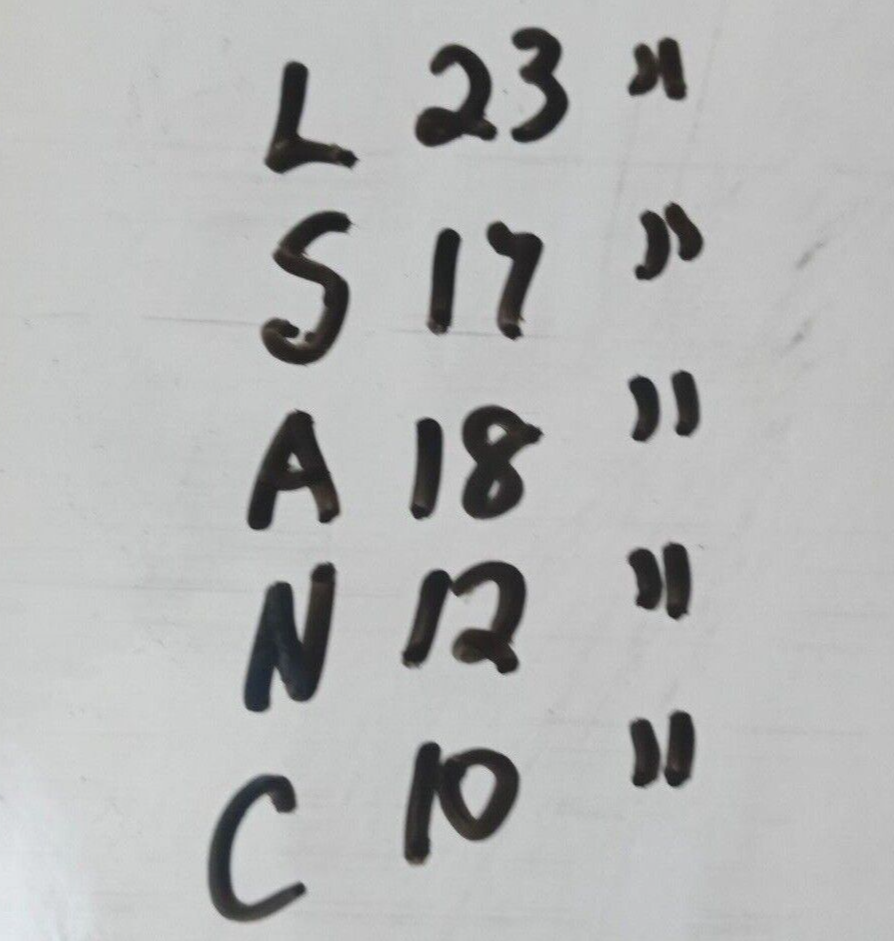 L 23 "
S 17 "
A 18 "
N 12 "
C 10 "